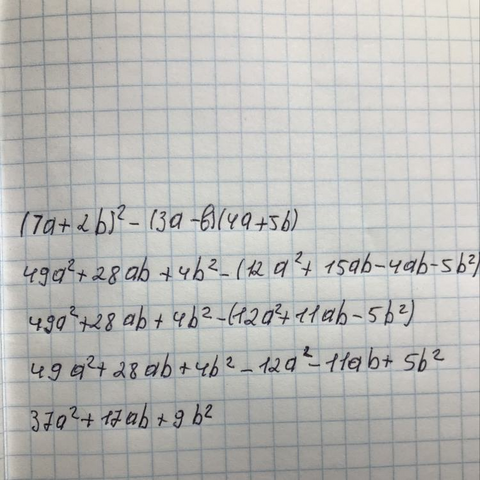 (7a+2b)² - (3a-b)(4a+5b)
49a²+28ab+4b²-(12a²+15ab-4ab-5b²)
49a²+28ab+4b²-(12a²+11ab-5b²)
49a²+28ab+4b²-12a²-11ab+5b²
37a²+17ab+9b²